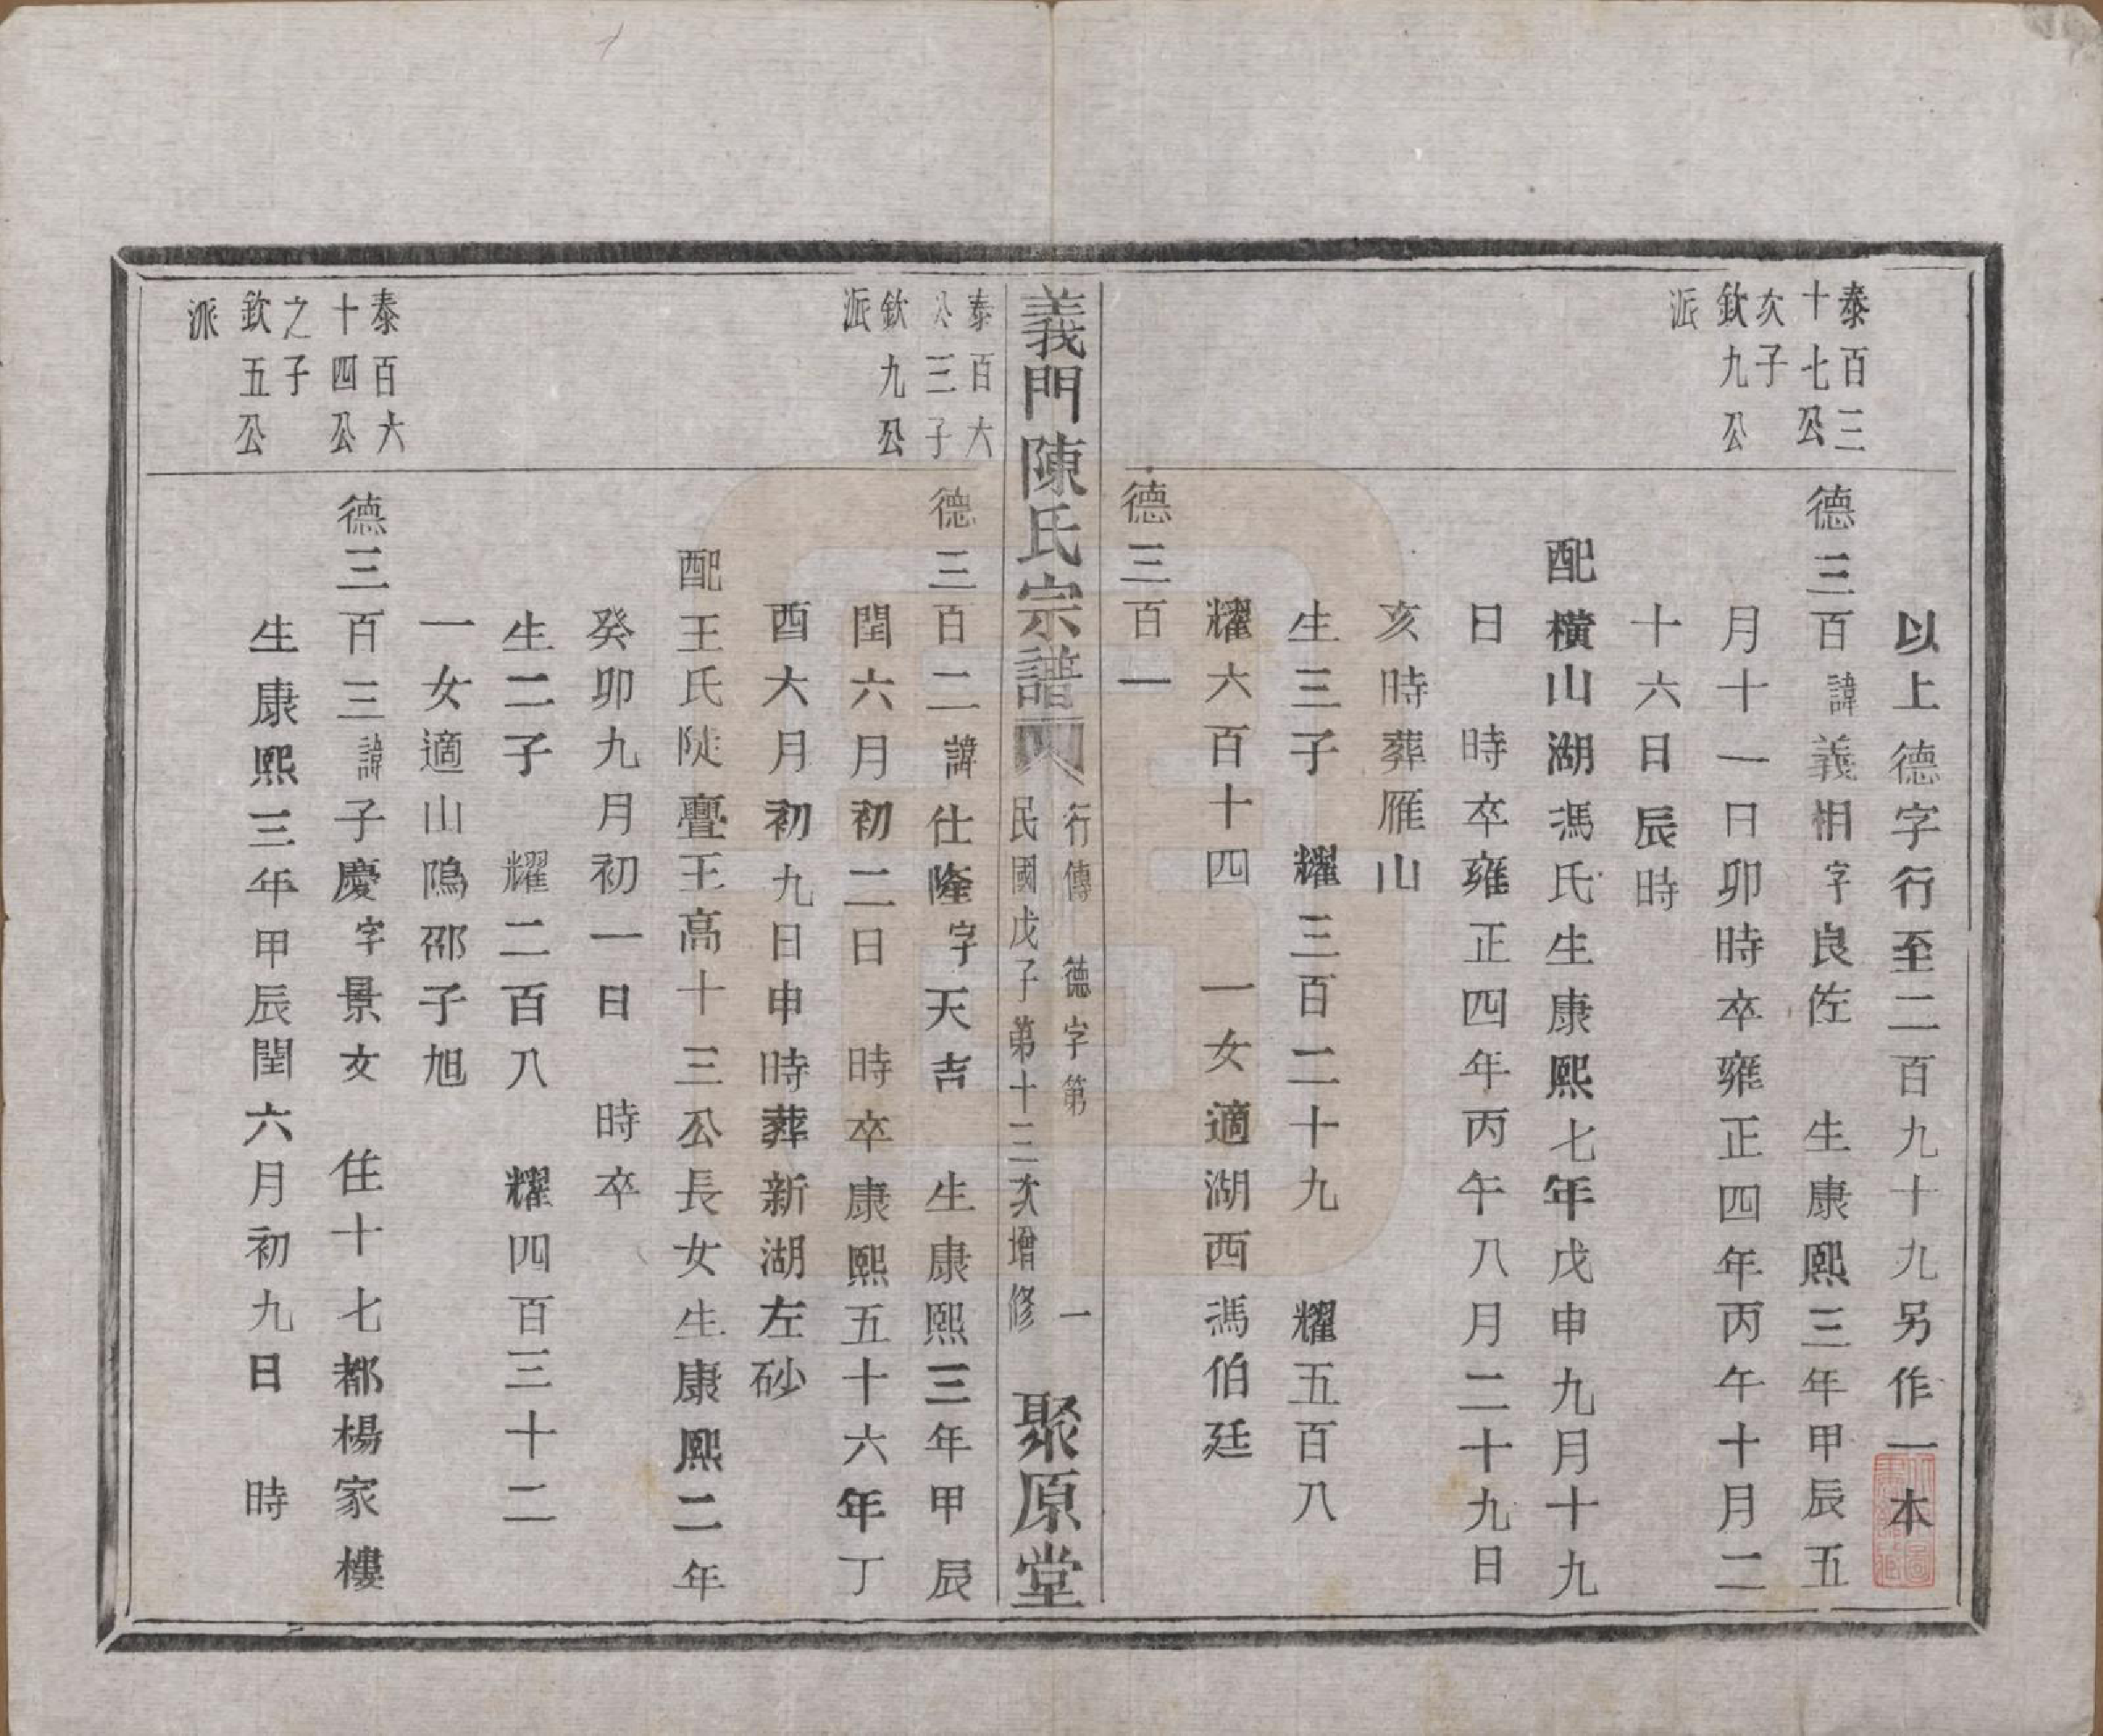 以上德字行至二百九十九另作一本
泰百三
十七公
次子
欽九公
派
德三百諱義相字良佐 生康熙三年甲辰五
月十一日卯時卒雍正四年丙午十月二
十六日辰時
配橫山湖馮氏生康熙七年戊申九月十九
日 時卒雍正四年丙午八月二十九日
亥時葬雁山
生三子 耀三百二十九 耀五百八
耀六百十四 一女適湖西馮伯廷
德三百一
義門陳氏宗譜
行傳 德字第 一
民國戊子第十三次增修
聚原堂
泰百六
公三子
欽九公
派
德三百二諱仕隆字天吉 生康熙三年甲辰
閏六月初二日 時卒康熙五十六年丁
酉六月初九日申時葬新湖左砂
配王氏陡亹王高十三公長女生康熙二年
癸卯九月初一日 時卒
生二子 耀二百八 耀四百三十二
一女適山鳴邵子旭
泰百六
十四公
之子
欽五公
派
德三百三諱子慶字景文 住十七都楊家樓
生康熙三年甲辰閏六月初九日 時